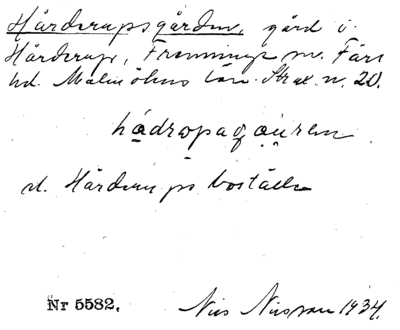 Hårderupsgården, gård i
Hårderup, Frenninge sn. Färs
hd. Malmöhus län. Skat. n. 20.
hådropagåuren
el. Hårderups boställe
Nr 5582. Nils Nilsson 1934.